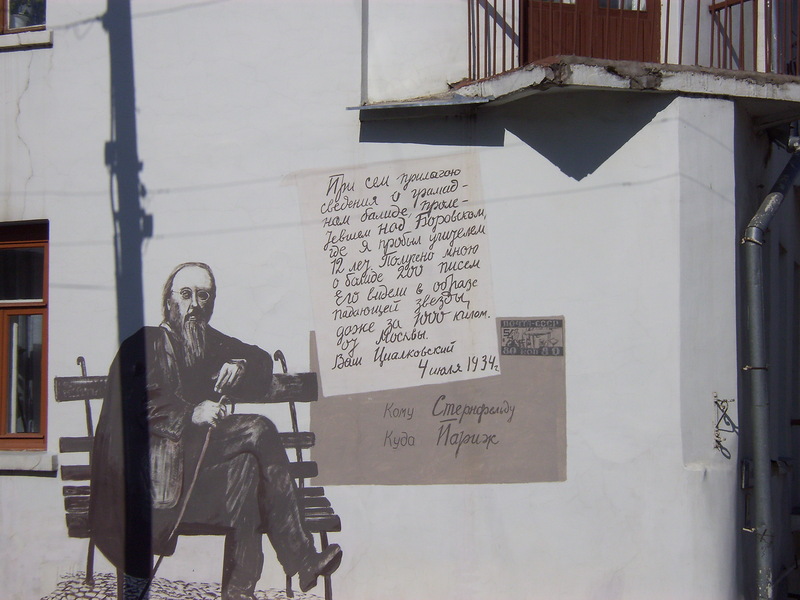 При сем прилагаю
сведения о громад-
ном болиде, проле-
тевшем над Боровском,
где я пробыл учителем
12 лет. Получено мною
о болиде 200 писем
Его видели в образе
падающей звезды,
даже за 1000 килом.
от Москвы.
Ваш Циалковский
4 июля 1934 г.
ПОЧТА СССР
Кому Стернфельду
Куда Париж